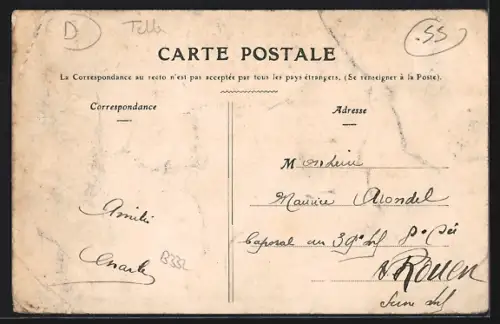 D
.55
CARTE POSTALE
La Correspondance au recto n'est pas acceptée par tous les pays étrangers. (Se renseigner à la Poste).
Correspondance
Adresse
Monsieur
Maurice
Caporal au 39e Inf
Rouen
Seine Inf
Amitiés
Charles
B332